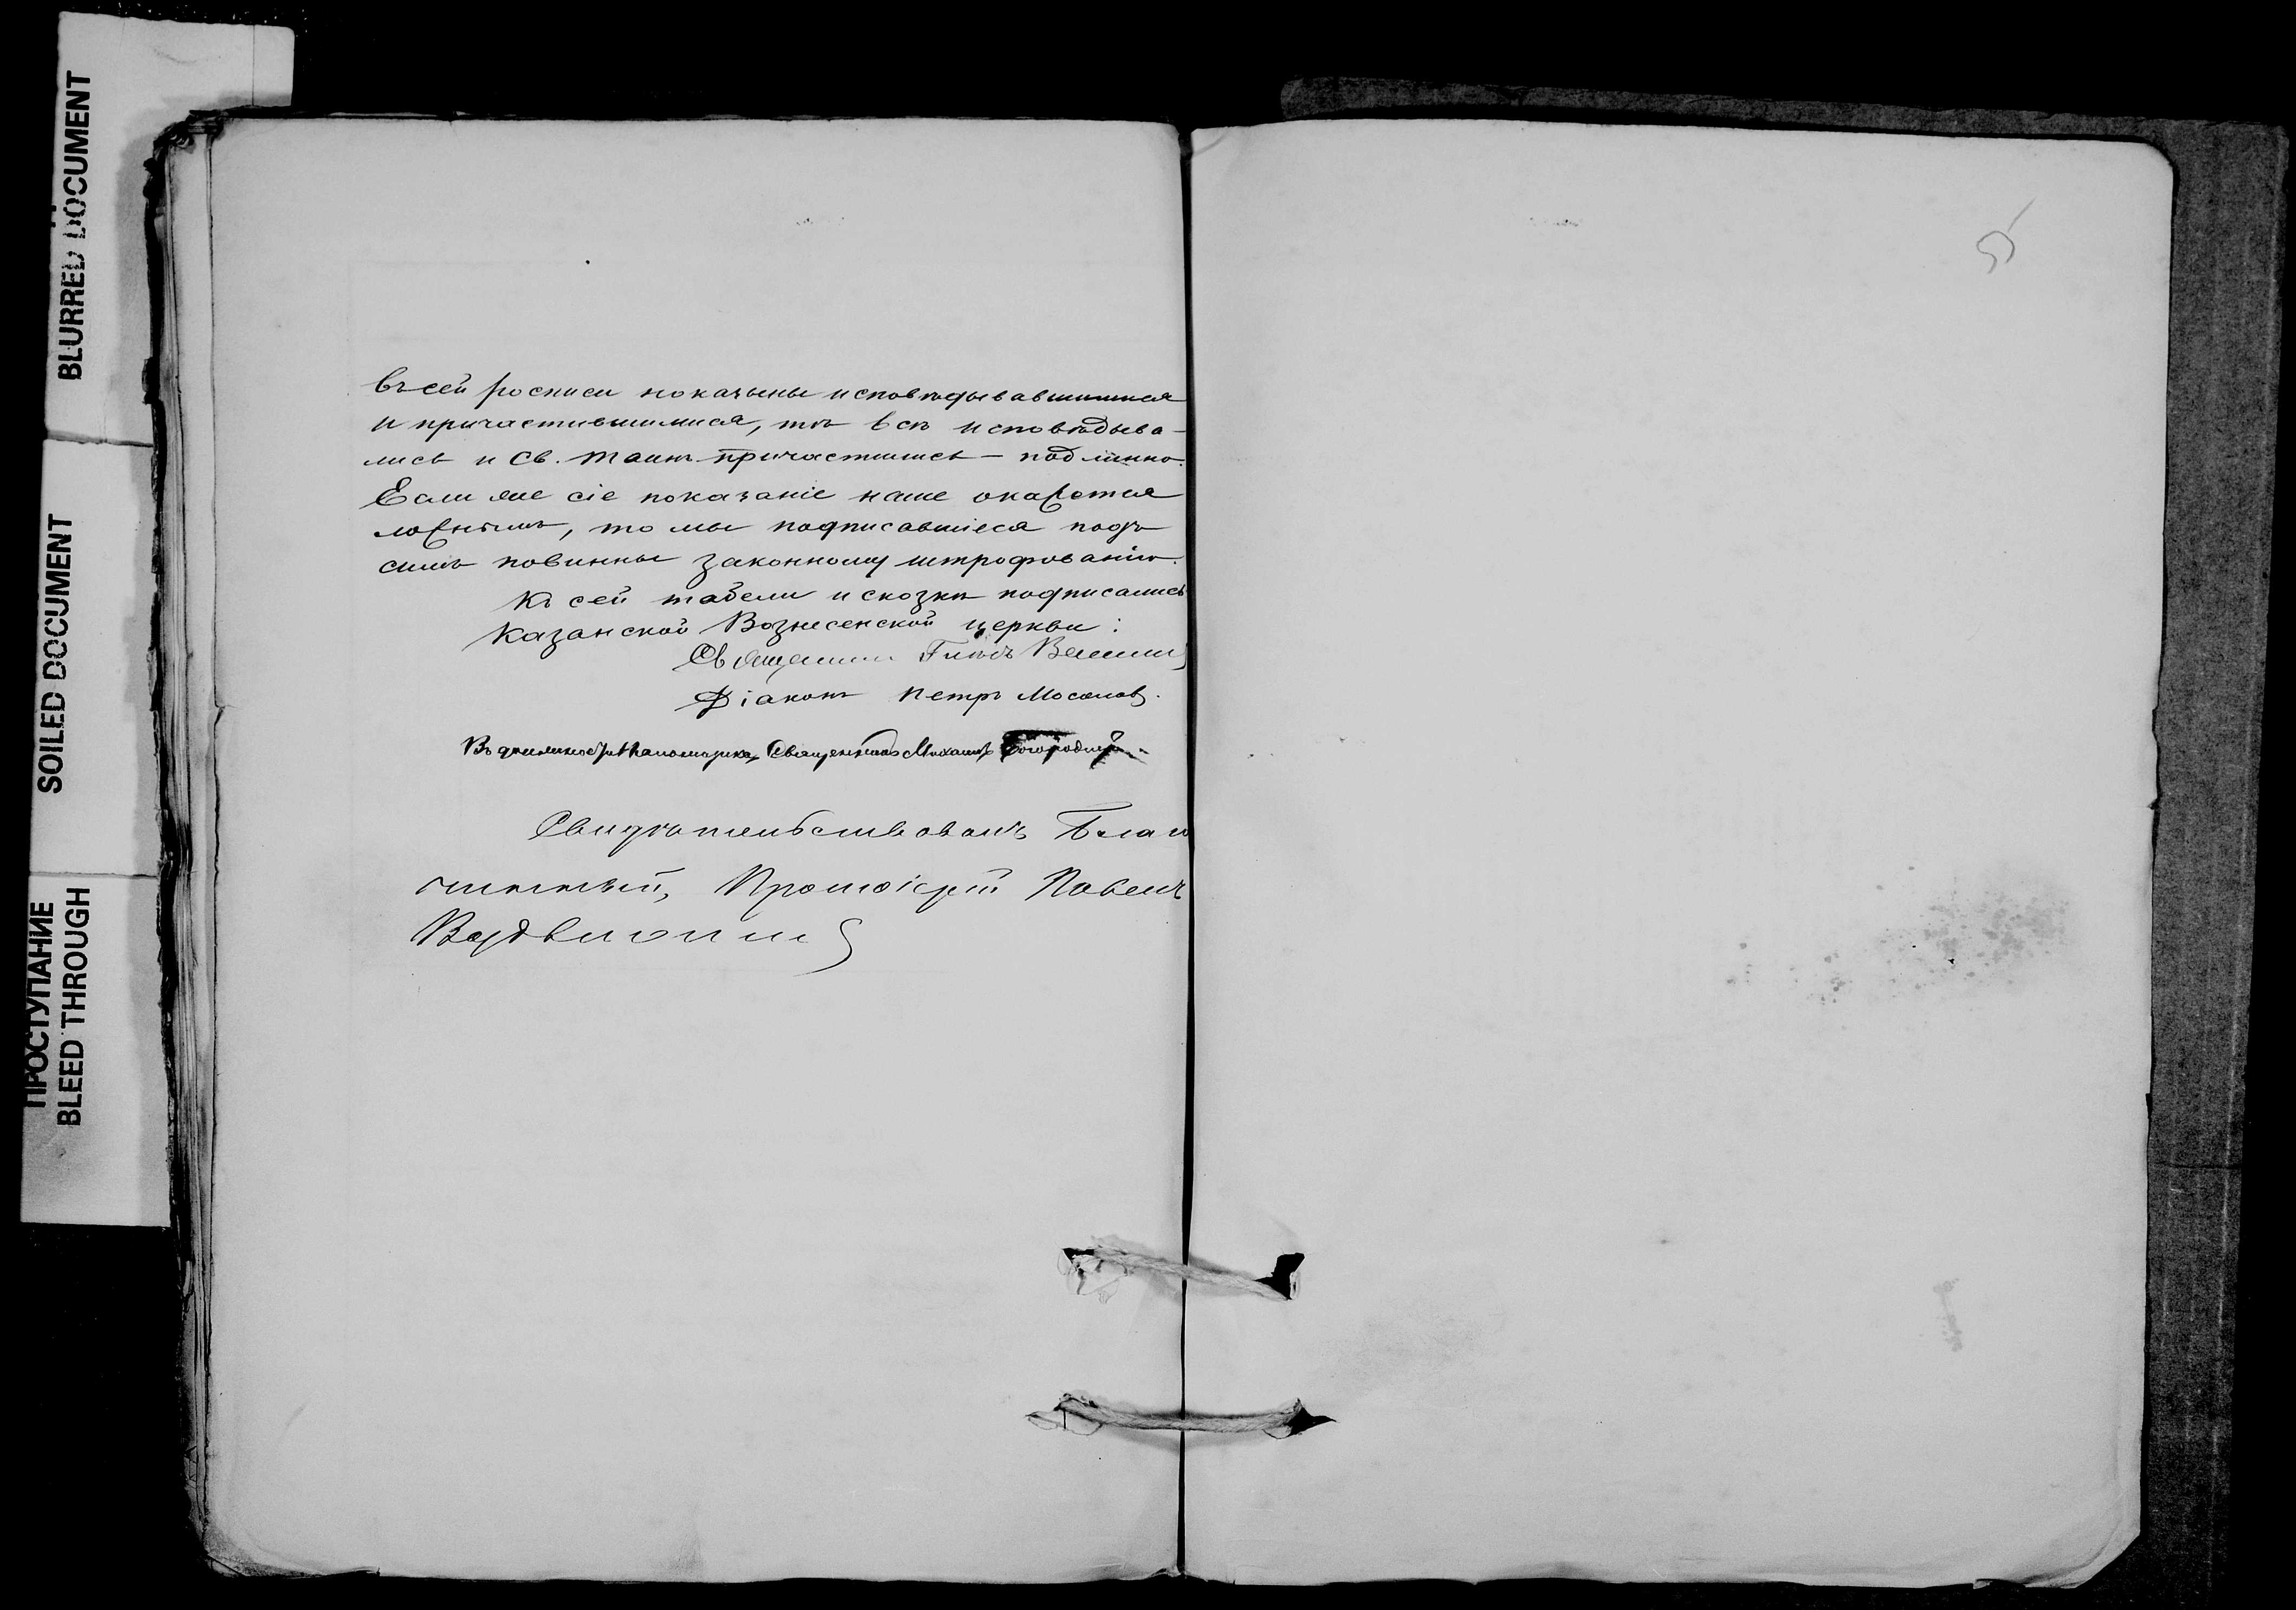 въ сей росписи показаны исповѣдывавшимися
и причастившимися, тѣ всѣ исповѣдыва-
лись и Св. Таинъ причастились – подлинно.
Если же сіе показаніе наше окажется
ложнымъ, то мы подписавшіеся подъ
симъ повинны законному штрофованію.
Къ сей табели и сказкѣ подписались
Казанской Вознесенской церкви:
Священникъ Глѣбъ
Діаконъ Петръ Мосолов
Въ должности Пономаря, Священникъ Михаилъ
Свидѣтельствовалъ Благо
чинный, Протоіерей Павелъ
5
BLURRED DOCUMENT
SOILED DOCUMENT
ПРОСТУПАНИЕ
BLEED THROUGH